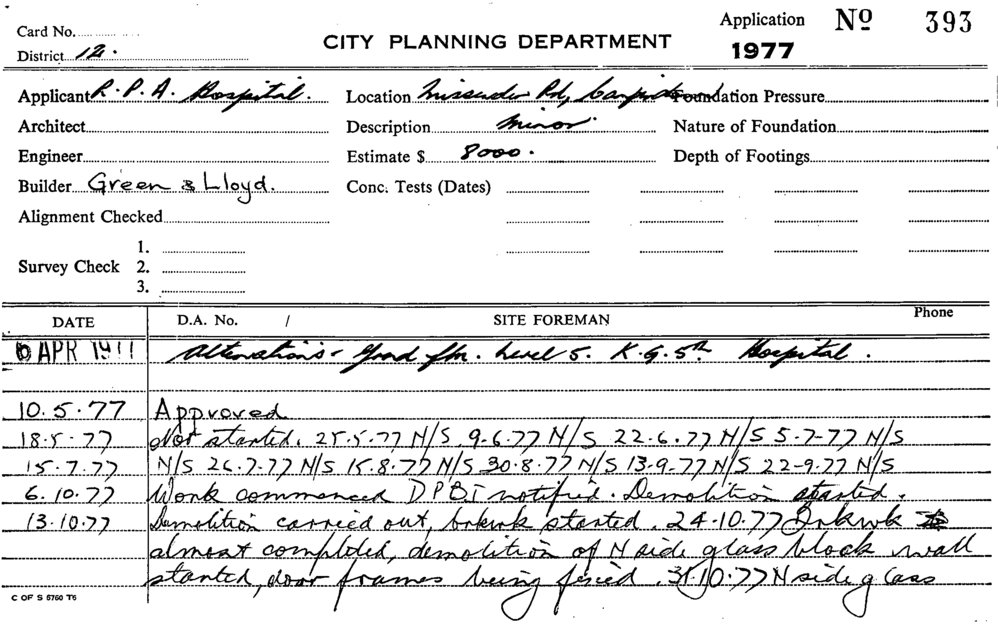 Card No.
District 12.
CITY PLANNING DEPARTMENT
Application Nº 393
1977
Applicant R.P.A. Hospital.
Location Missenden Rd, Camperdown
Foundation Pressure
Architect
Description Minor.
Nature of Foundation
Engineer
Estimate $ 8000.
Depth of Footings
Builder Green & Lloyd.
Conc. Tests (Dates)
Alignment Checked
Survey Check
1.
2.
3.
DATE
D.A. No. /
SITE FOREMAN
Phone
6 APR 1977
Alterations - Level 5. K.G.5th Hospital.
10.5.77 Approved
18.5.77 Not started. 25.5.77 N/S 9.6.77 N/S 22.6.77 N/S 5-7-77 N/S
15.7.77 N/S 26.7.77 N/S 15.8.77 N/S 30.8.77 N/S 13-9-77 N/S 22-9.77 N/S
6.10.77 Work commenced DPBI notified. Demolition started.
13.10.77 Demolition carried out, brkwk started. 24.10.77 Brkwk
almost completed, demolition of N side glass block wall
started, door frames being fixed. 31.10.77 N side glass
C OF S 5760 T6